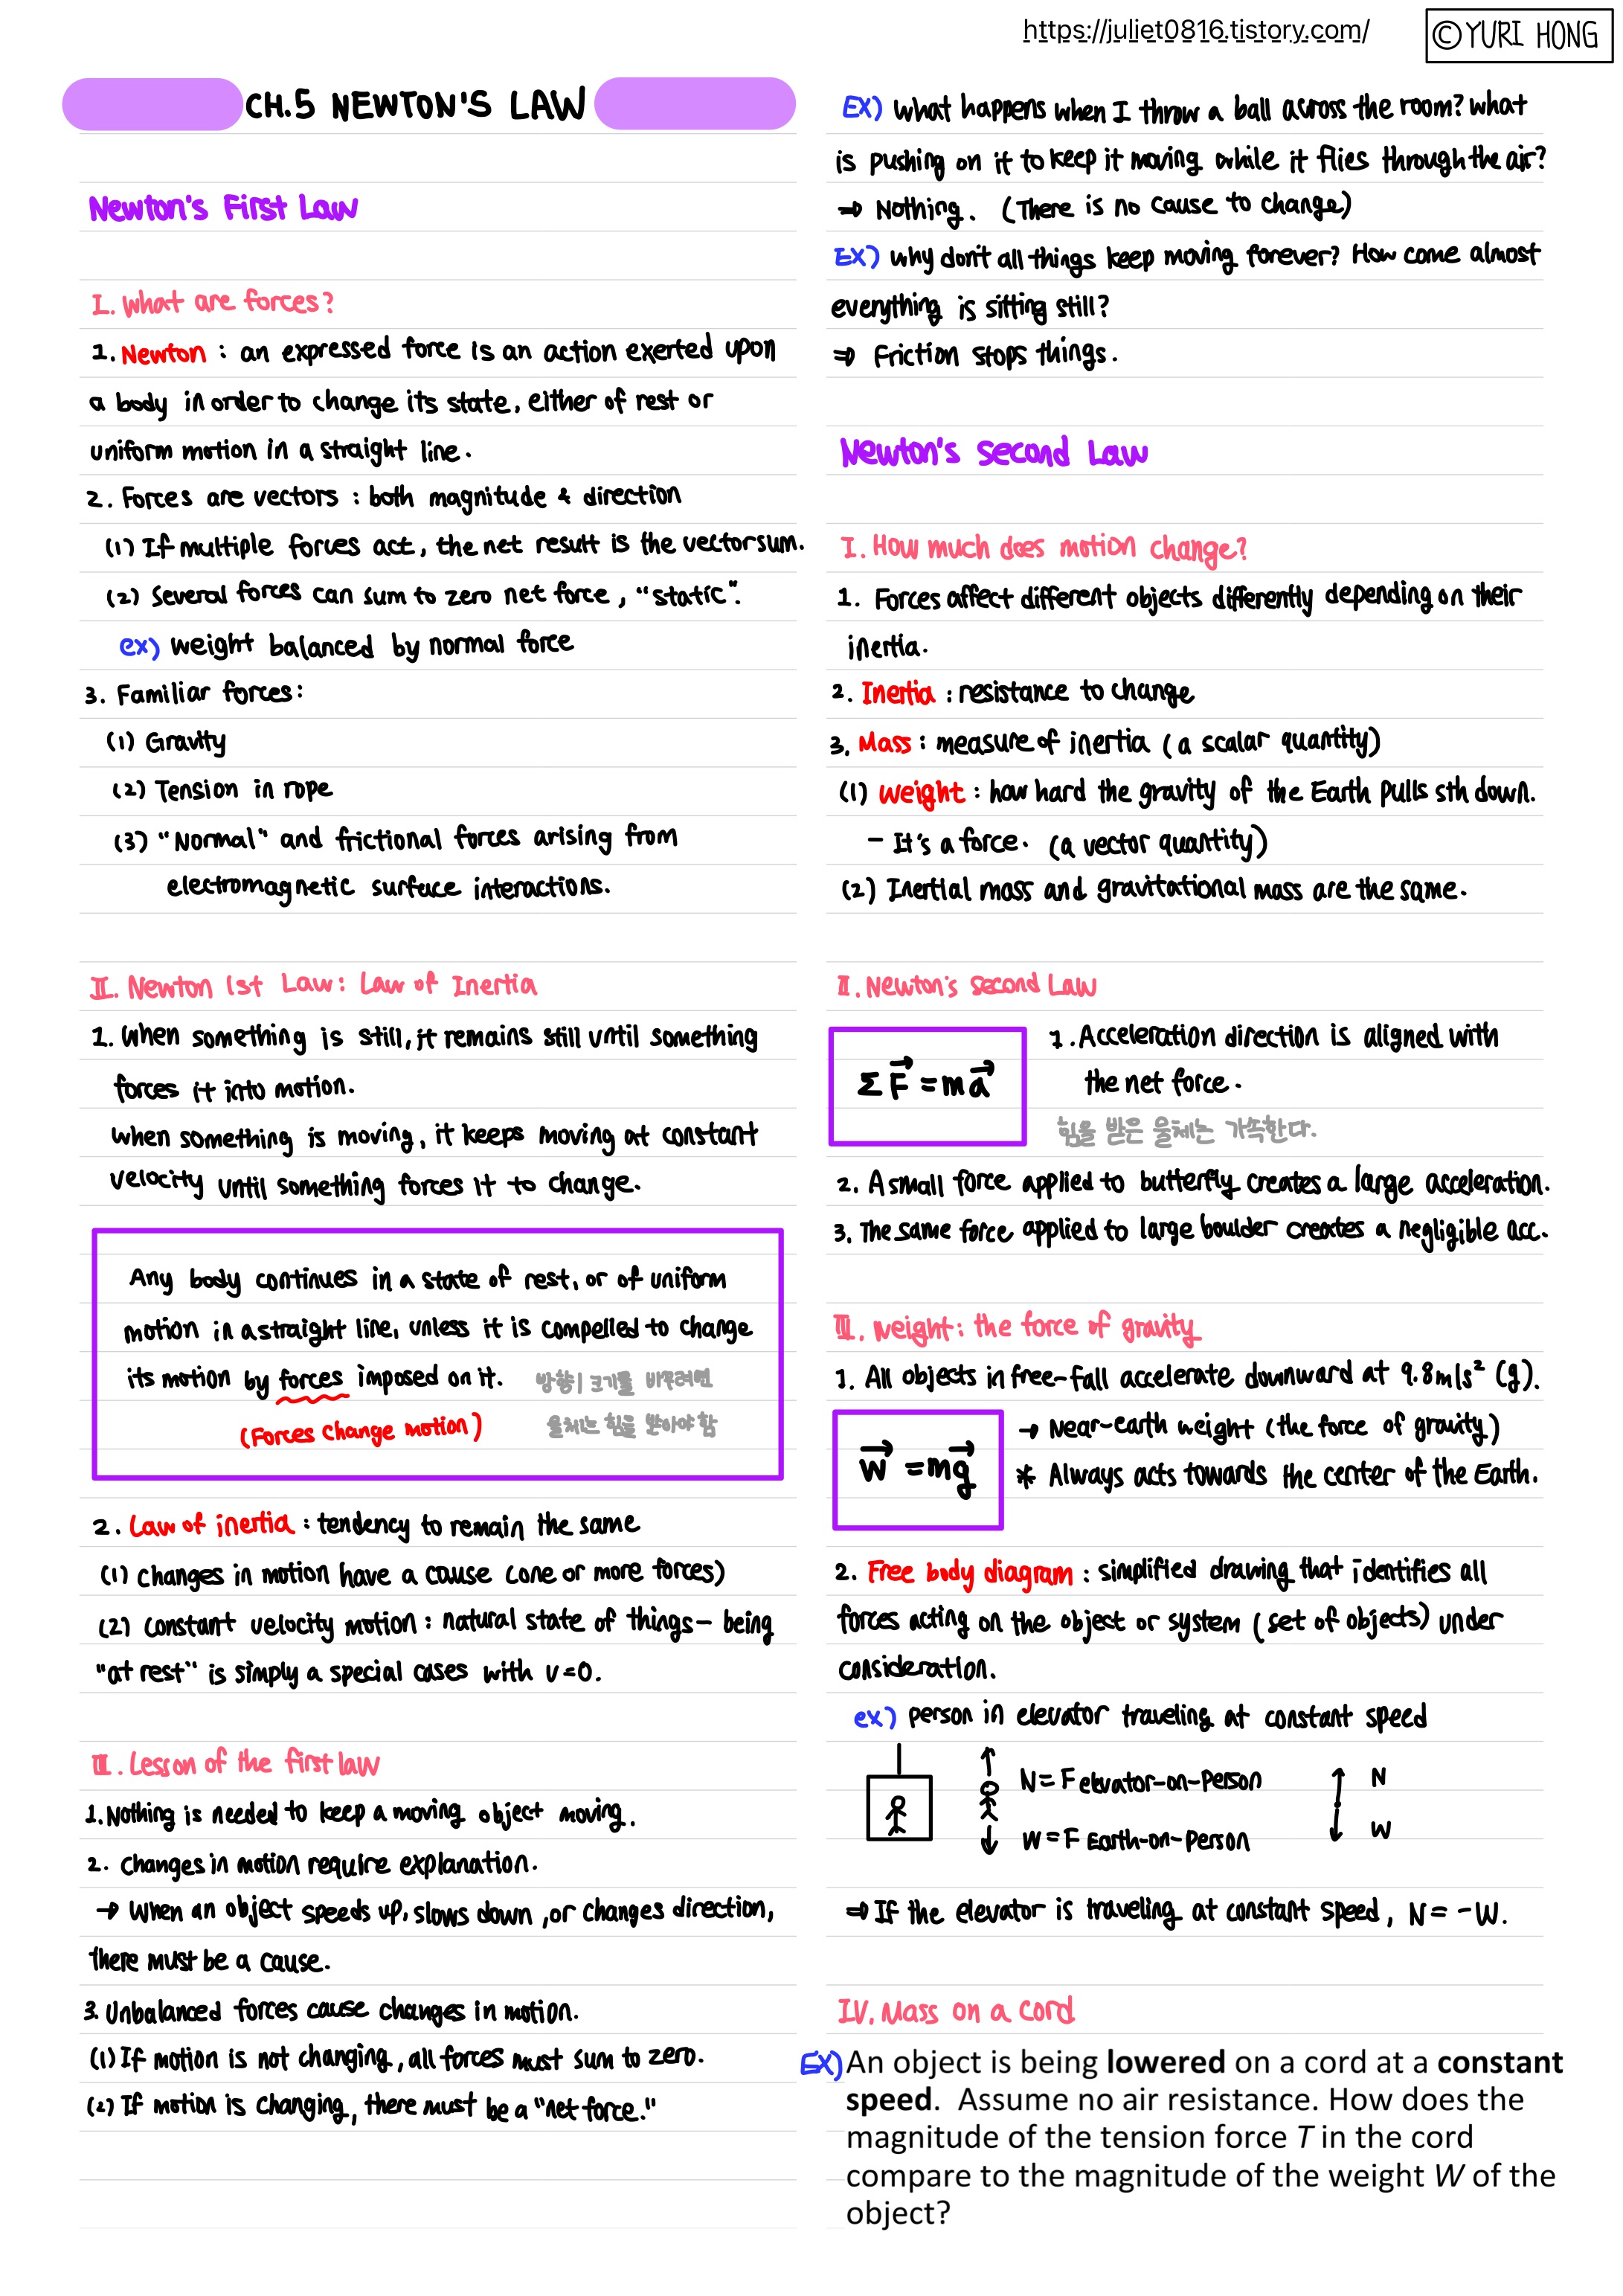 https://juliet0816.tistory.com/
©YURI HONG
CH.5 NEWTON'S LAW
Newton's First Law
I. What are forces?
1. Newton : an expressed force is an action exerted upon
a body in order to change its state, either of rest or
uniform motion in a straight line.
2. Forces are vectors : both magnitude & direction
(1) If multiple forces act, the net result is the vector sum.
(2) Several forces can sum to zero net force, "static".
ex) weight balanced by normal force
3. Familiar forces:
(1) Gravity
(2) Tension in rope
(3) "Normal" and frictional forces arising from
electromagnetic surface interactions.
II. Newton 1st Law: Law of Inertia
1. When something is still, it remains still until something
forces it into motion.
When something is moving, it keeps moving at constant
velocity until something forces it to change.
Any body continues in a state of rest, or of uniform
motion in a straight line, unless it is compelled to change
its motion by forces imposed on it. 방향 | 크기를 바꾸려면
(Forces change motion) 물체는 힘을 받아야 함
2. Law of inertia : tendency to remain the same
(1) changes in motion have a cause (one or more forces)
(2) constant velocity motion : natural state of things - being
"at rest" is simply a special cases with v=0.
III. Lesson of the first law
1. Nothing is needed to keep a moving object moving.
2. Changes in motion require explanation.
→ When an object speeds up, slows down, or changes direction,
there must be a cause.
3. Unbalanced forces cause changes in motion.
(1) If motion is not changing, all forces must sum to zero.
(2) If motion is changing, there must be a "net force."
EX) What happens when I throw a ball across the room? what
is pushing on it to keep it moving while it flies through the air?
⇒ Nothing. (There is no cause to change)
EX) Why don't all things keep moving forever? How come almost
everything is sitting still?
⇒ Friction stops things.
Newton's Second Law
I. How much does motion change?
1. Forces affect different objects differently depending on their
inertia.
2. Inertia : resistance to change
3. Mass : measure of inertia (a scalar quantity)
(1) Weight : how hard the gravity of the Earth pulls sth down.
- It's a force. (a vector quantity)
(2) Inertial mass and gravitational mass are the same.
II. Newton's Second Law
ΣF⃗ = ma⃗
1. Acceleration direction is aligned with
the net force.
힘을 받은 물체는 가속한다.
2. A small force applied to butterfly creates a large acceleration.
3. The same force applied to large boulder creates a negligible acc.
III. Weight: the force of gravity
1. All objects in free-fall accelerate downward at 9.8m/s² (g).
W⃗ = mg⃗
→ Near-earth weight (the force of gravity)
* Always acts towards the center of the Earth.
2. Free body diagram : simplified drawing that identifies all
forces acting on the object or system (set of objects) under
consideration.
ex) person in elevator traveling at constant speed
N = F elevator-on-person N
W = F Earth-on-person W
⇒ If the elevator is traveling at constant speed, N = -W.
IV. Mass on a cord
EX) An object is being lowered on a cord at a constant
speed. Assume no air resistance. How does the
magnitude of the tension force T in the cord
compare to the magnitude of the weight W of the
object?